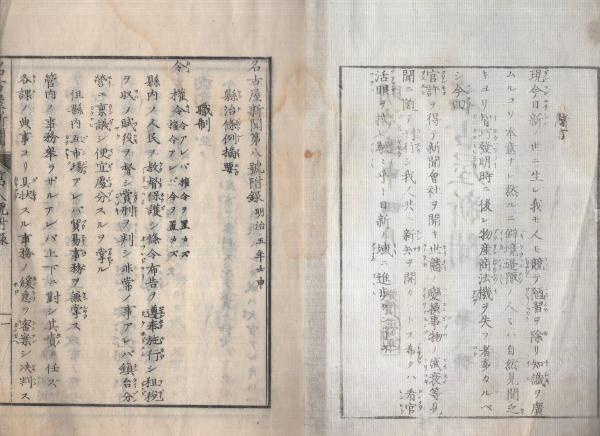 緒言
現今日新ノ世ニ生レ我モ人モ競テ陋習ヲ除リ知識ヲ廣
ムルコソ本意ナ然ルニ僻境邊陬ノ人ミハ自然見聞乏
キヨリ智巧發明時ニ後レ物産商法機ヲ失フ者多カルベ
シ今四
官許ヲ得テ新聞會社ヲ開キ世態ノ變換事物ノ盛衰等見
聞ニ随テ刊行シ我人共ニ新知ヲ開カントス希クハ看官
活眼ヲ
日新ノ域ニ進歩
名古屋新聞第八號附録 明治五年壬申
縣治條例摘要
職制
令 權令アレバ權令ヲ置カズ
權令 令アレバ令ヲ置カズ
縣内ノ人民ヲ教督保護シ條令布告ヲ遵奉施行シ租税
ヲ収メ賦役ヲ督シ賞刑ヲ判シ非常ノ事アレバ鎮台分
營エ稟議シ便宜處分スルヲ掌ル
但縣内互市場アレバ貿易事務ヲ兼掌ス
管内ノ事務擧ラザルアレバ上下ニ對シ其責ニ任ズ
各課ノ典事ヨリ具状スル事務ノ緩急ヲ審案シ决判ス
名古屋新聞
第八號附録
一